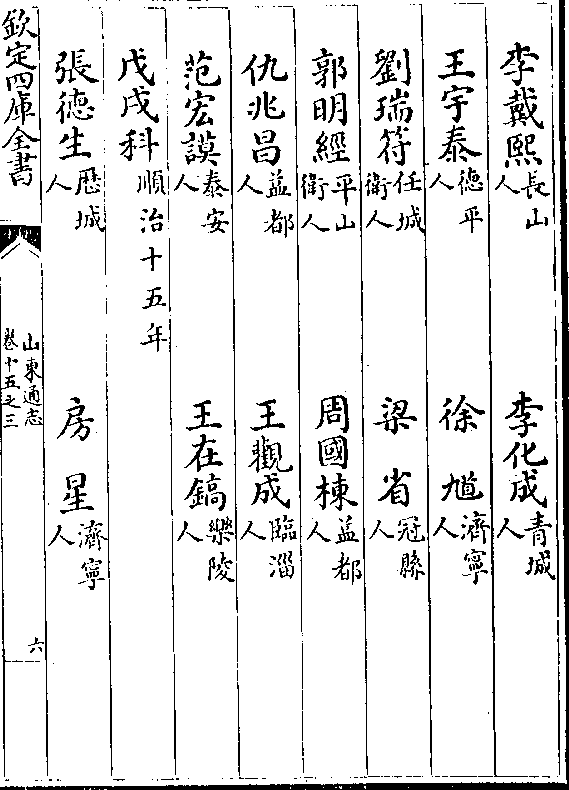 李戴熙長山人　李化成青城人
王宇泰德平人　徐馗濟寧人
劉瑞符任城衛人　梁省冠縣人
郭明經平山衛人　周國棟益都人
仇兆昌益都人　王觀成臨淄人
范宏謨泰安人　王在鎬樂陵人
戊戌科順治十五年
張德生歷城人　房星濟寧人
欽定四庫全書
山東通志
卷十五之三
六